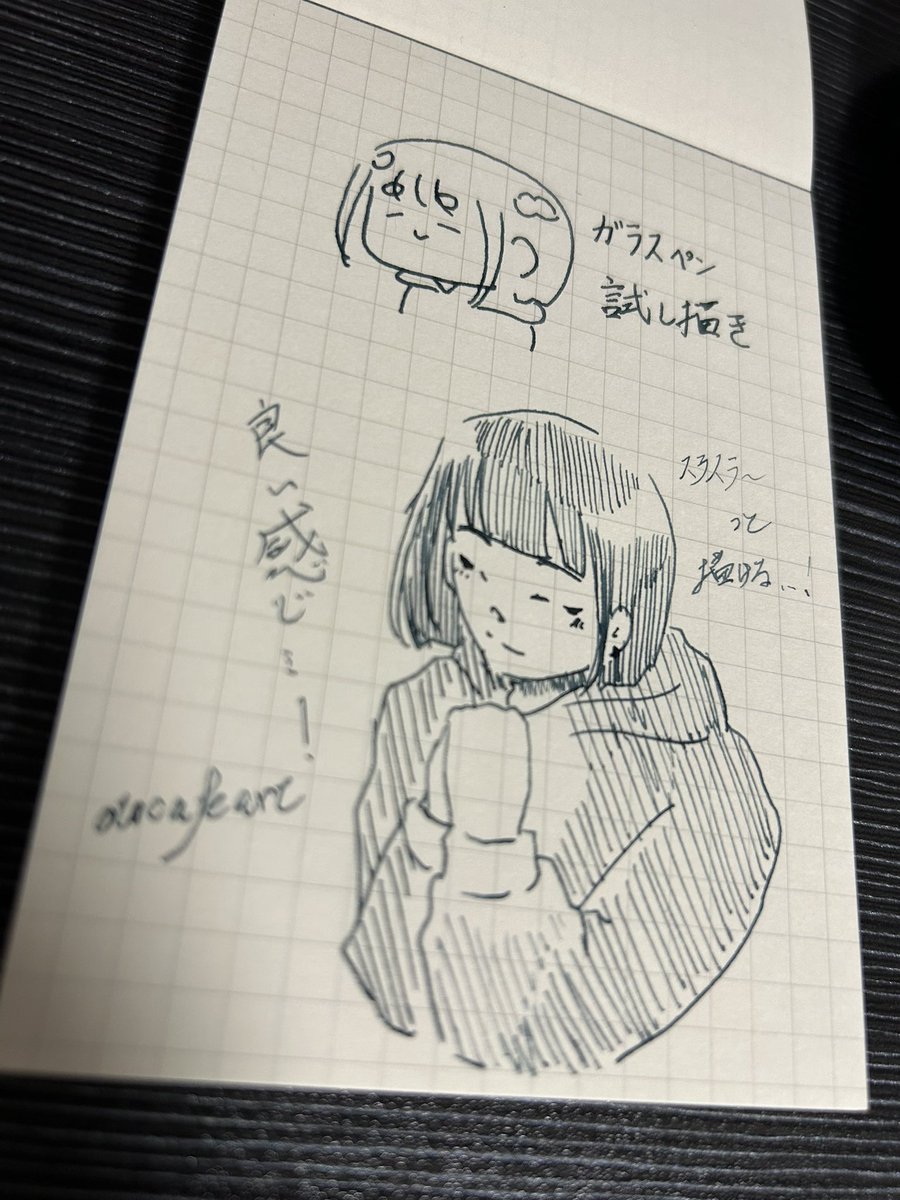 めしゆ
ガラスペン
試し描き
スラスラ〜
って
描ける…!
良い感じ…!
otucafeart